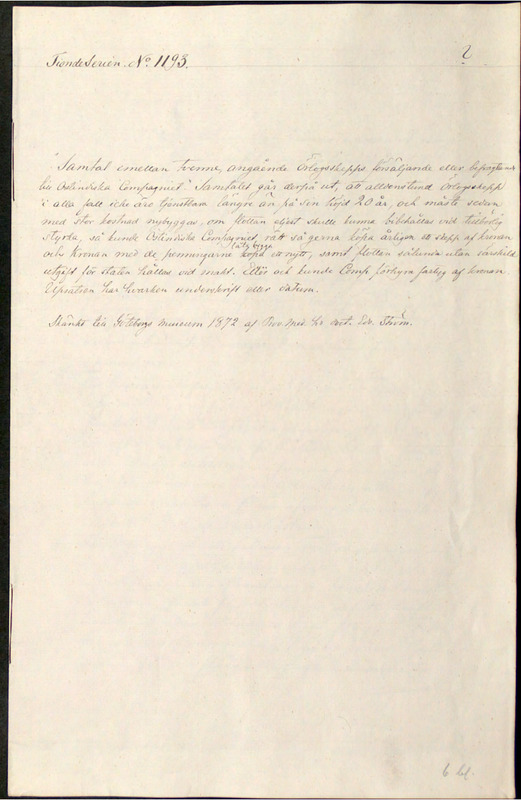 Tionde Serien. No. 1193.
2
"Samtal emellan tvenne, angående Örlogsskepps försäljande eller
till Ostindiska Compagniet." Samtalet går derpå ut, att alldenstund Örlogsskepp
i alla fall icke äro tjenstbara längre än på sin höjd 20 år, och måste sedan
med stor kostnad nybyggas, om flottan eljest skulle kunna bibehållas vid tillbörlig
styrka, så kunde Ostindiska Compagniet rätt så gerna köpa årligen ett skepp af kronan
och kronan med de penningarne låta bygga ett nytt, samt flottan sålunda utan särskild
utgift för staten hållas vid makt. Eller ock kunde Comp. förhyra fartyg af kronan.
Uppsatsen har hvarken underskrift eller datum.
Skänkt till Göteborgs Museum 1872 af Prov. Med. Hr Doct. Edv. Ström.
6 bl.